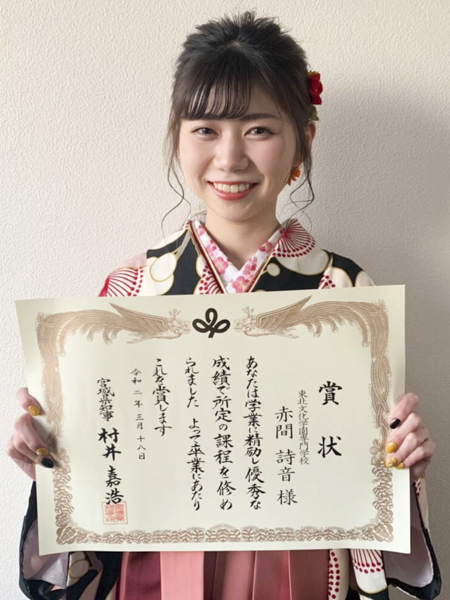 賞状
東北文化学園専門学校
赤間 詩音 様
あなたは学業に精励し優秀な
成績で所定の課程を修め
られました よって卒業にあたり
これを賞します
令和二年三月十八日
宮城県知事 村井 嘉浩